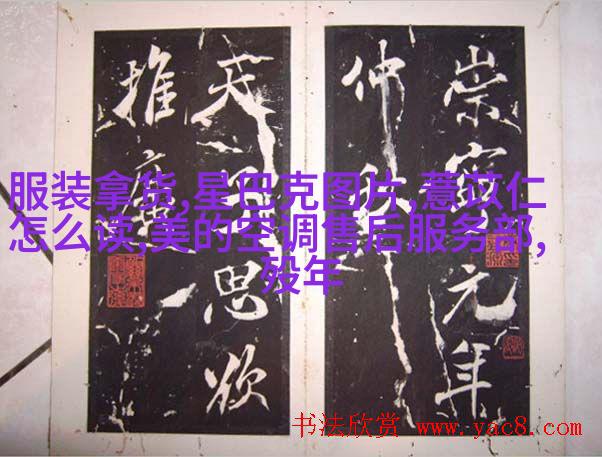 崇寧元年
仲
思欲
推廣
服装拿货,星巴克图片,薏苡仁
怎么读,美的空调售后服务部,
殁年
书法欣赏 www.yac8.com